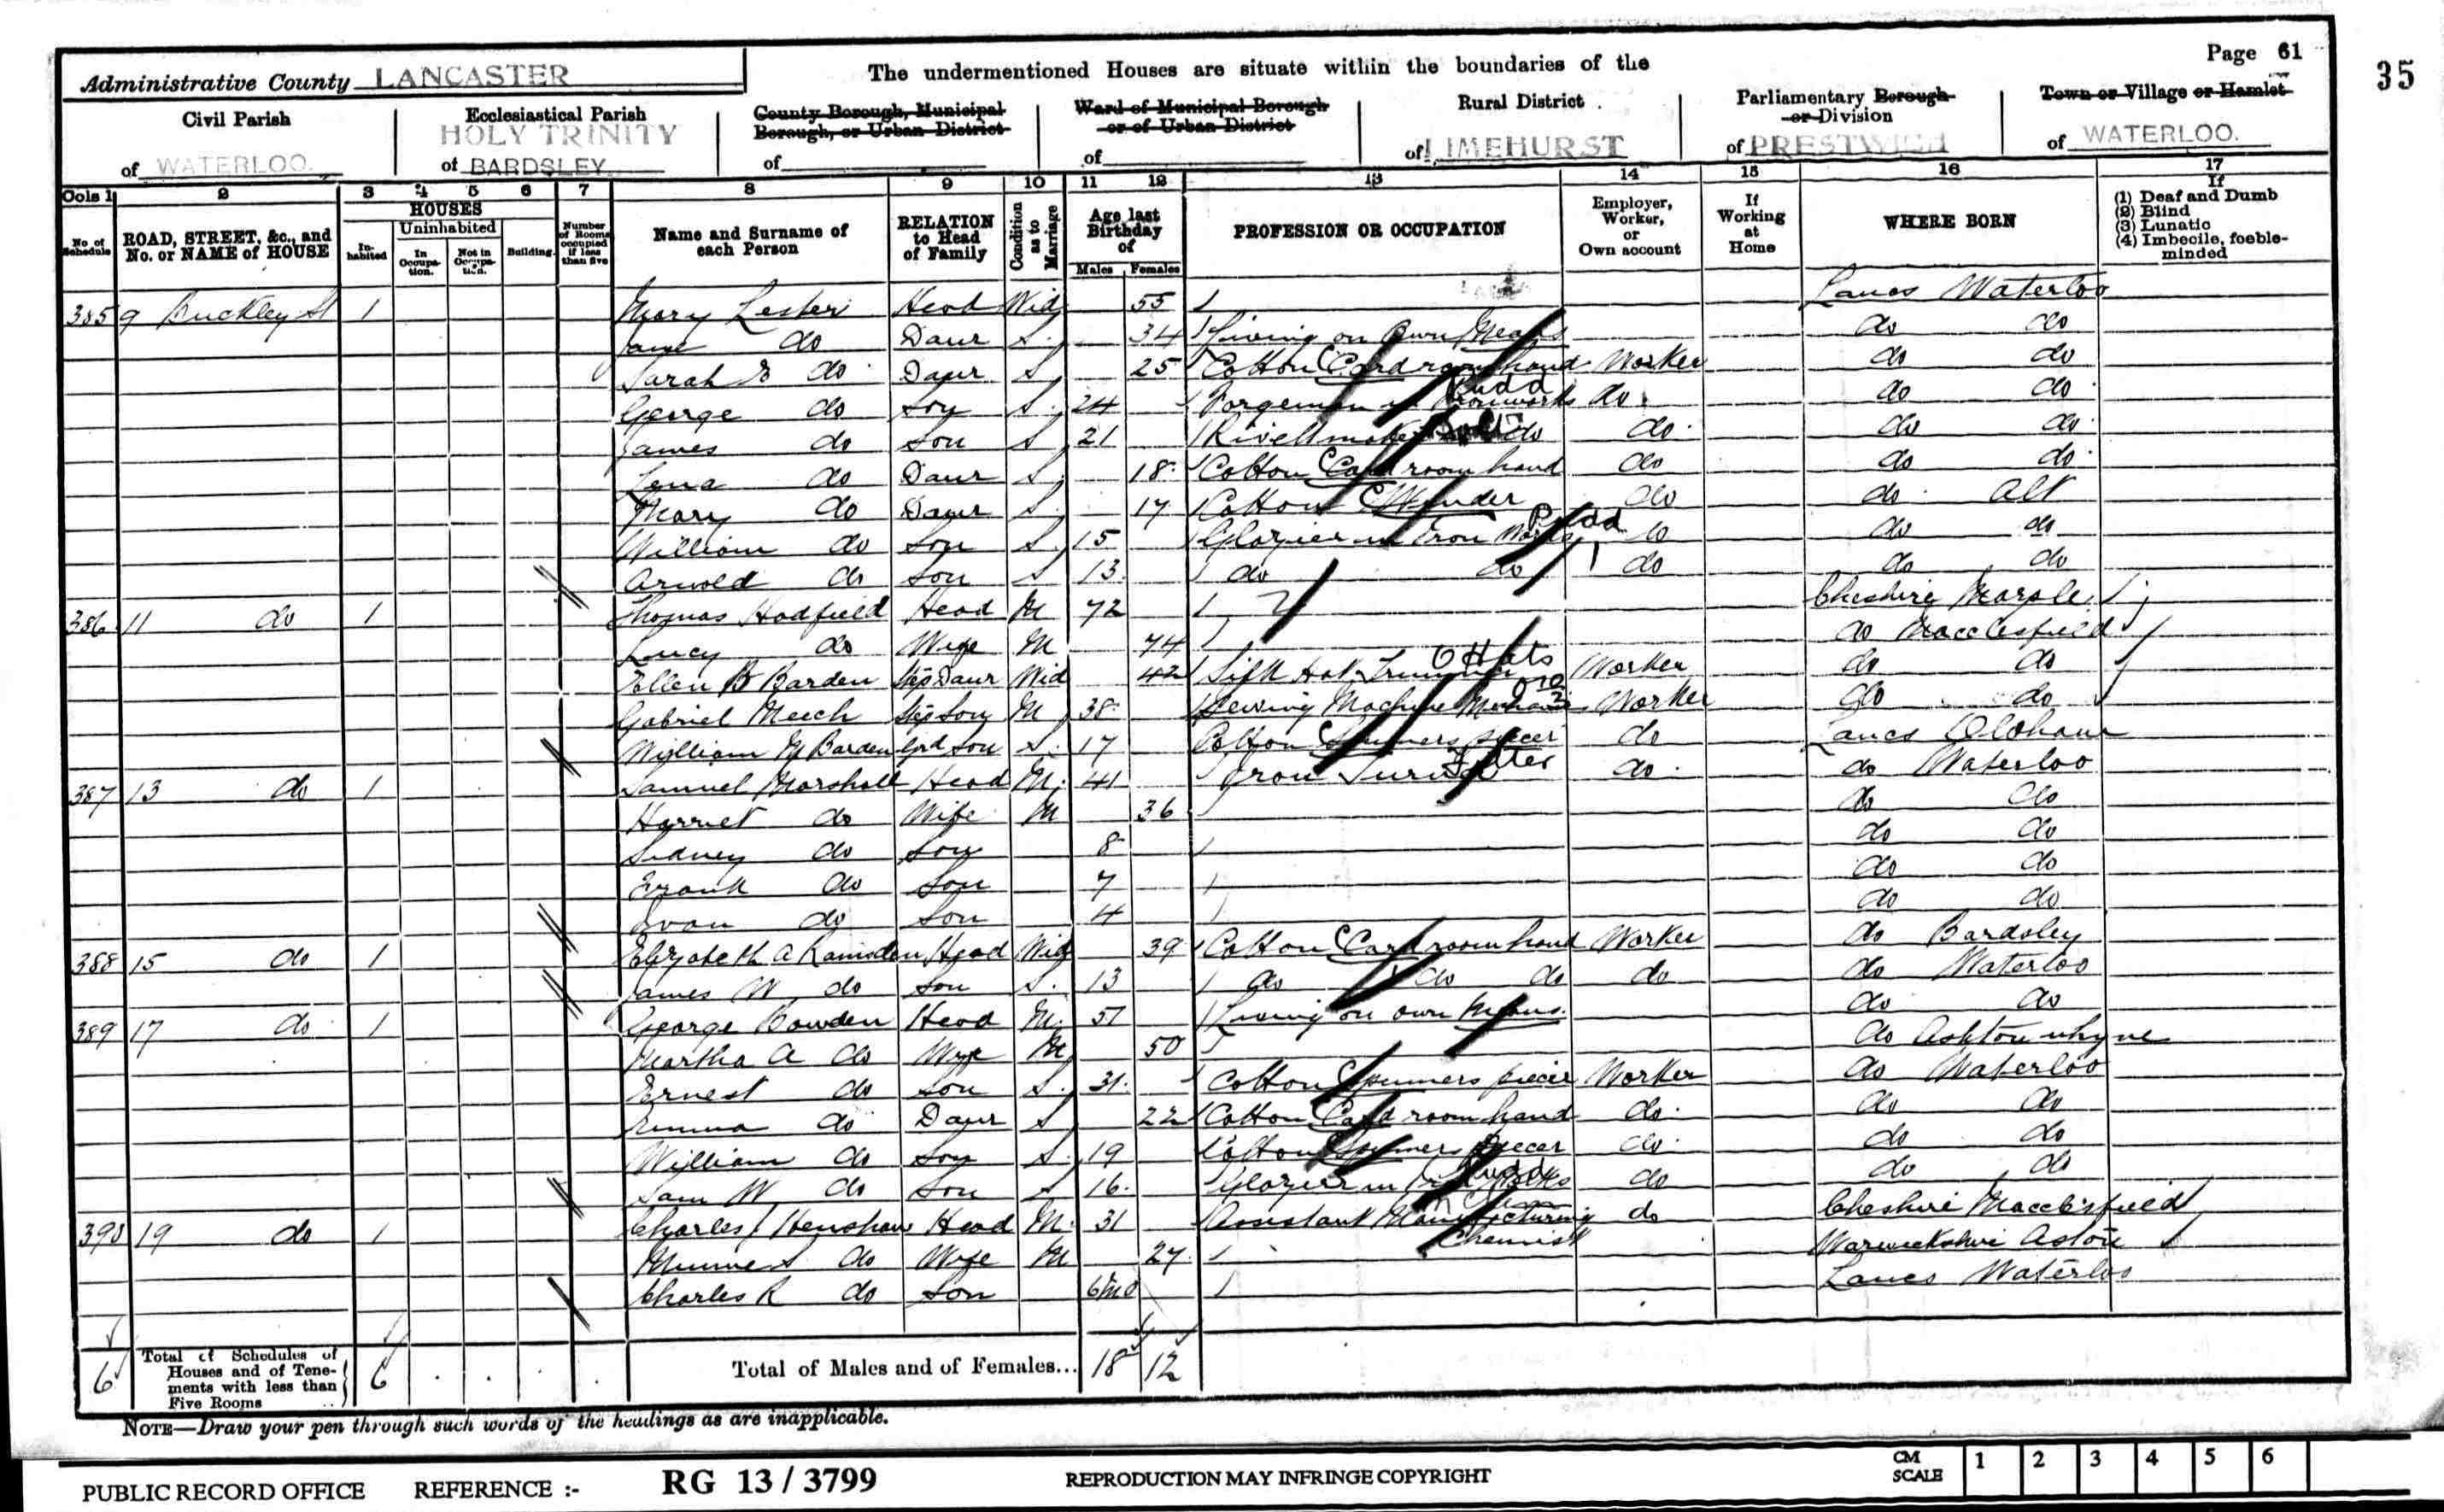 Page 61
35
Administrative County LANCASTER
The undermentioned Houses are situate within the boundaries of the
Civil Parish of WATERLOO.
Ecclesiastical Parish HOLY TRINITY of BARDSLEY
County Borough, Municipal Borough, or Urban District of
Ward of Municipal Borough or of Urban District of
Rural District of LIMEHURST
Parliamentary Borough or Division of PRESTWICH
Town or Village or Hamlet of WATERLOO.
Cols 1 2 3 4 5 6 7 8 9 10 11 12 13 14 15 16 17
No. of Schedule
ROAD, STREET, &c., and No. or NAME of HOUSE
HOUSES
Inhabited
Uninhabited
In Occupation.
Not in Occupation.
Building.
Number of Rooms occupied if less than five
Name and Surname of each Person
RELATION to Head of Family
Condition as to Marriage
Age last Birthday of
Males Females
PROFESSION OR OCCUPATION
Employer, Worker, or Own account
If Working at Home
WHERE BORN
If
(1) Deaf and Dumb
(2) Blind
(3) Lunatic
(4) Imbecile, feeble-minded
385 9 Buckley St 1 Mary Lester Head Wid 55 Lancs Waterloo
Jane do Daur S. 34 Living on Own Means do do
Sarah E do Daur S 25 Cotton Card room hand Worker do do
George do Son S. 24 Forgeman in Ironworks Pudd do. do do
James do Son S 21 Rivet maker do do. do do.
Lena do Daur S. 18 Cotton Card room hand do do do.
Mary do Daur S. 17 Cotton Winder do do. Alt
William do Son S. 15 Glazier in Iron Works Pudd do do do
Arnold do Son S 13 do do do do do
386 11 do 1 Thomas Hadfield Head M 72 Cheshire Marple
Lucy do Wife M 74 do Macclesfield
Ellen B Barden Step Daur Wid 42 Silk Hat Trimmer O Hats Worker do do
Gabriel Meech Step Son M 38 Sewing Machine Worker do do
William M Barden Grd Son S. 17 Cotton Spinners piecer do Lancs Oldham
387 13 do 1 Samuel Marshall Head M. 41 Iron Turner Fitter do. do Waterloo
Harriet do Wife M 36 do do
Sidney do Son 8 do do
Frank do Son 7 do do
Ivan do Son 4 do do
388 15 do 1 Elizabeth A Ramsden Head Wid 39 Cotton Card room hand Worker do Bardsley
James W do Son S. 13 do do do do do Waterloo
389 17 do 1 George Bowden Head M. 51 Living on own Means. do do
Martha A do Wife M 50 do Ashton u Lyne
Ernest do Son S. 31. Cotton Spinners piecer Worker do Waterloo
Emma do Daur S 22 Cotton Card room hand do. do do
William do Son S. 19 Cotton Spinners piecer do. do do
Sam W do Son S 16. Glazier in Iron Works Pudd do do do
390 19 do 1 Charles J Henshaw Head M. 31 Assistant Manufacturing Chemist do Cheshire Macclesfield
Minnie S do Wife M 27. Warwickshire Aston
Charles R do Son 6mo Lancs Waterloo
6 Total of Schedules of Houses and of Tenements with less than Five Rooms 6 Total of Males and of Females... 18 12
NOTE—Draw your pen through such words of the headings as are inapplicable.
PUBLIC RECORD OFFICE REFERENCE :- RG 13 / 3799 REPRODUCTION MAY INFRINGE COPYRIGHT CM SCALE 1 2 3 4 5 6